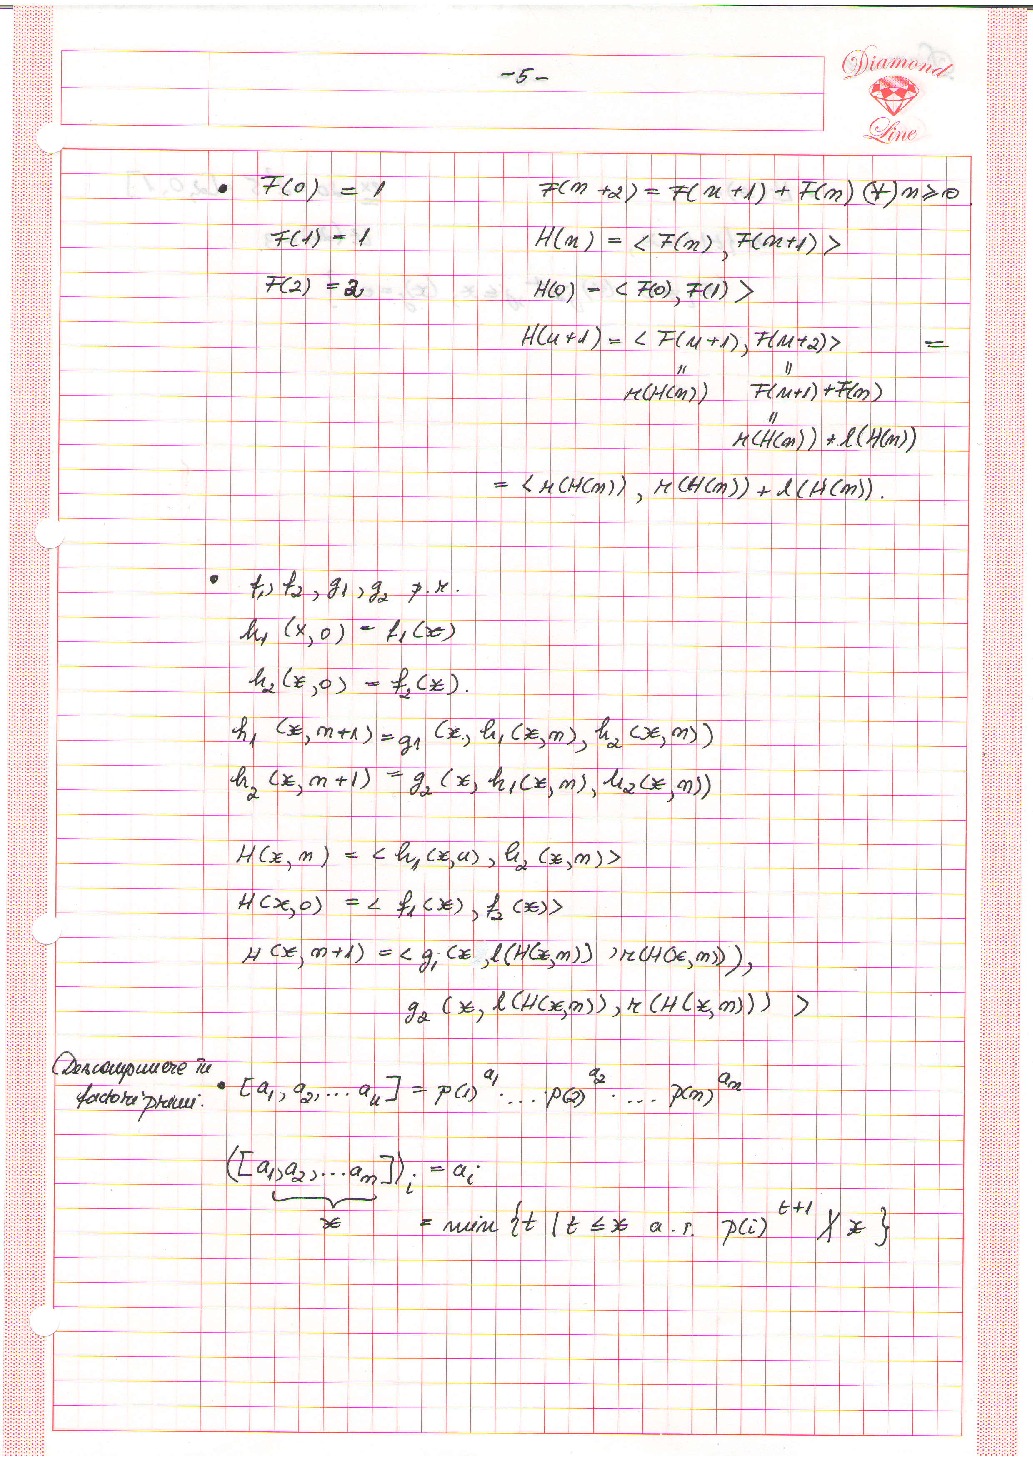 -5-
Diamond
Line
• F(0) = 1 F(n+2) = F(n+1) + F(n) (∀) n ≥ 0
F(1) = 1 H(n) = < F(n), F(n+1) >
F(2) = 2 H(0) = < F(0), F(1) >
H(n+1) = < F(n+1), F(n+2) > =
" "
r(H(n)) F(n+1) + F(n)
"
r(H(n)) + l(H(n))
= < r(H(n)), r(H(n)) + l(H(n)).
• f₁, f₂, g₁, g₂ p.r.
h₁ (x,0) = f₁(x)
h₂(x,0) = f₂(x).
h₁ (x, n+1) = g₁ (x, h₁(x,n), h₂(x,n))
h₂ (x, n+1) = g₂ (x, h₁(x,n), h₂(x,n))
H(x, n) = < h₁(x,n), h₂(x,n) >
H(x,0) = < f₁(x), f₂(x) >
H(x, n+1) = < g₁(x, l(H(x,n)), r(H(x,n))),
g₂ (x, l(H(x,n)), r(H(x,n))) >
(Descompunere în
factori primi.
• [a₁, a₂, ... aₙ] = p(1)^a₁ · ... p(2)^a₂ · ... p(n)^aₙ
([a₁,a₂,...aₙ])ᵢ = aᵢ
x = min {t | t ≤ x a.î. p(i)^t+1 ∤ x }